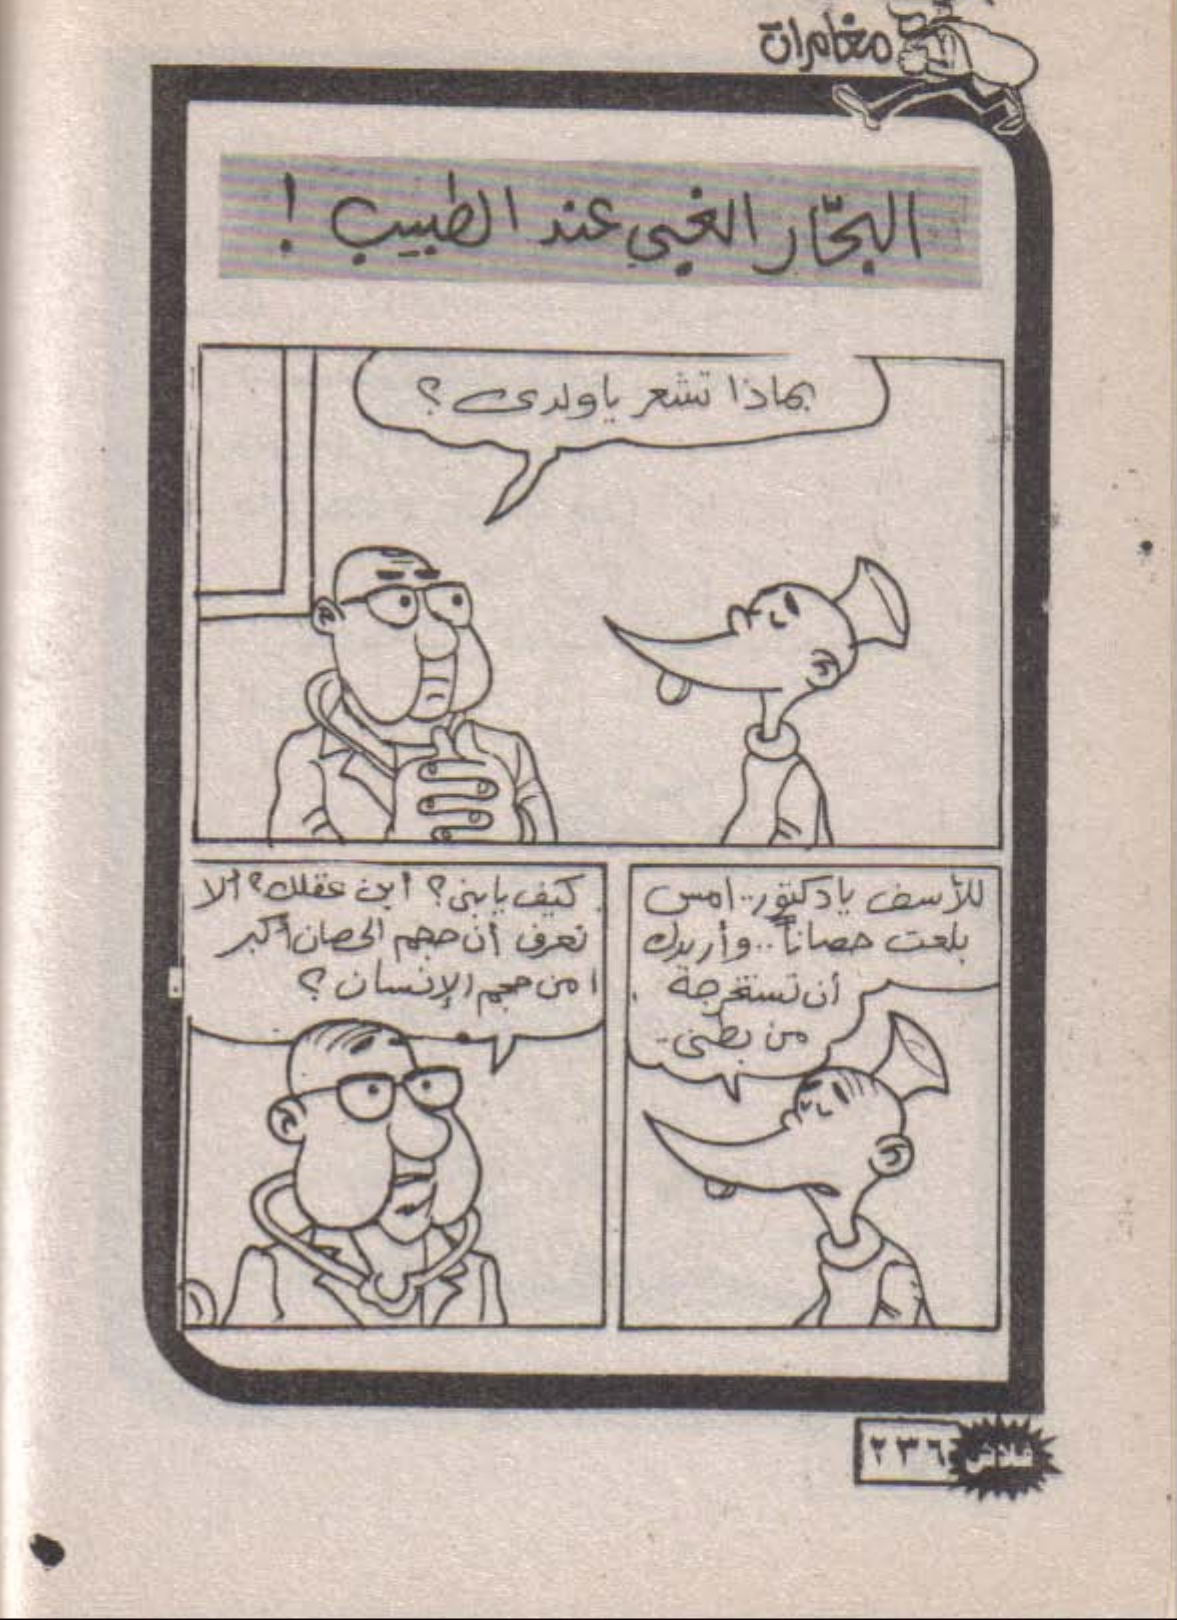 مغامرات
البحّار الغبي عند الطبيب !
بماذا تشعر ياولدى ؟
للأسف يادكتور.. امس
بلعت حصاناً.. وأريدك
أن تستخرجة
من بطنى..
كيف يابنى؟ أين عقلك؟ ألا
تعرف أن حجم الحصان أكبر
من حجم الإنسان ؟
فلاش ٢٣٦